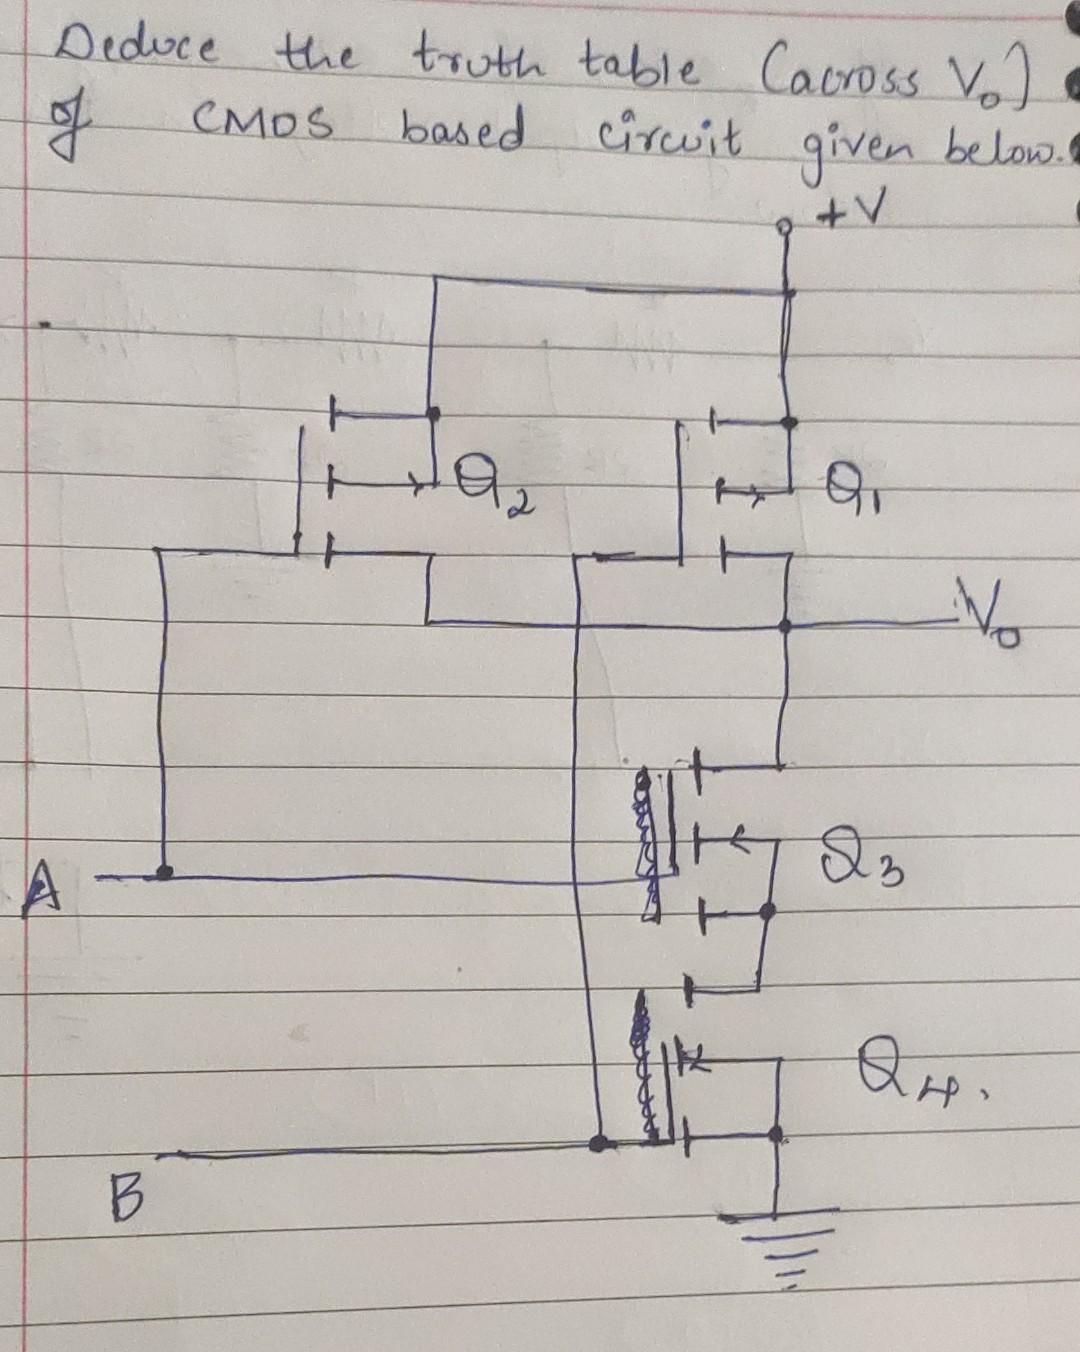 Deduce the truth table (across V₀)
of CMOS based circuit given below.
+V
Q₂
Q₁
V₀
A
Q₃
Q₄.
B